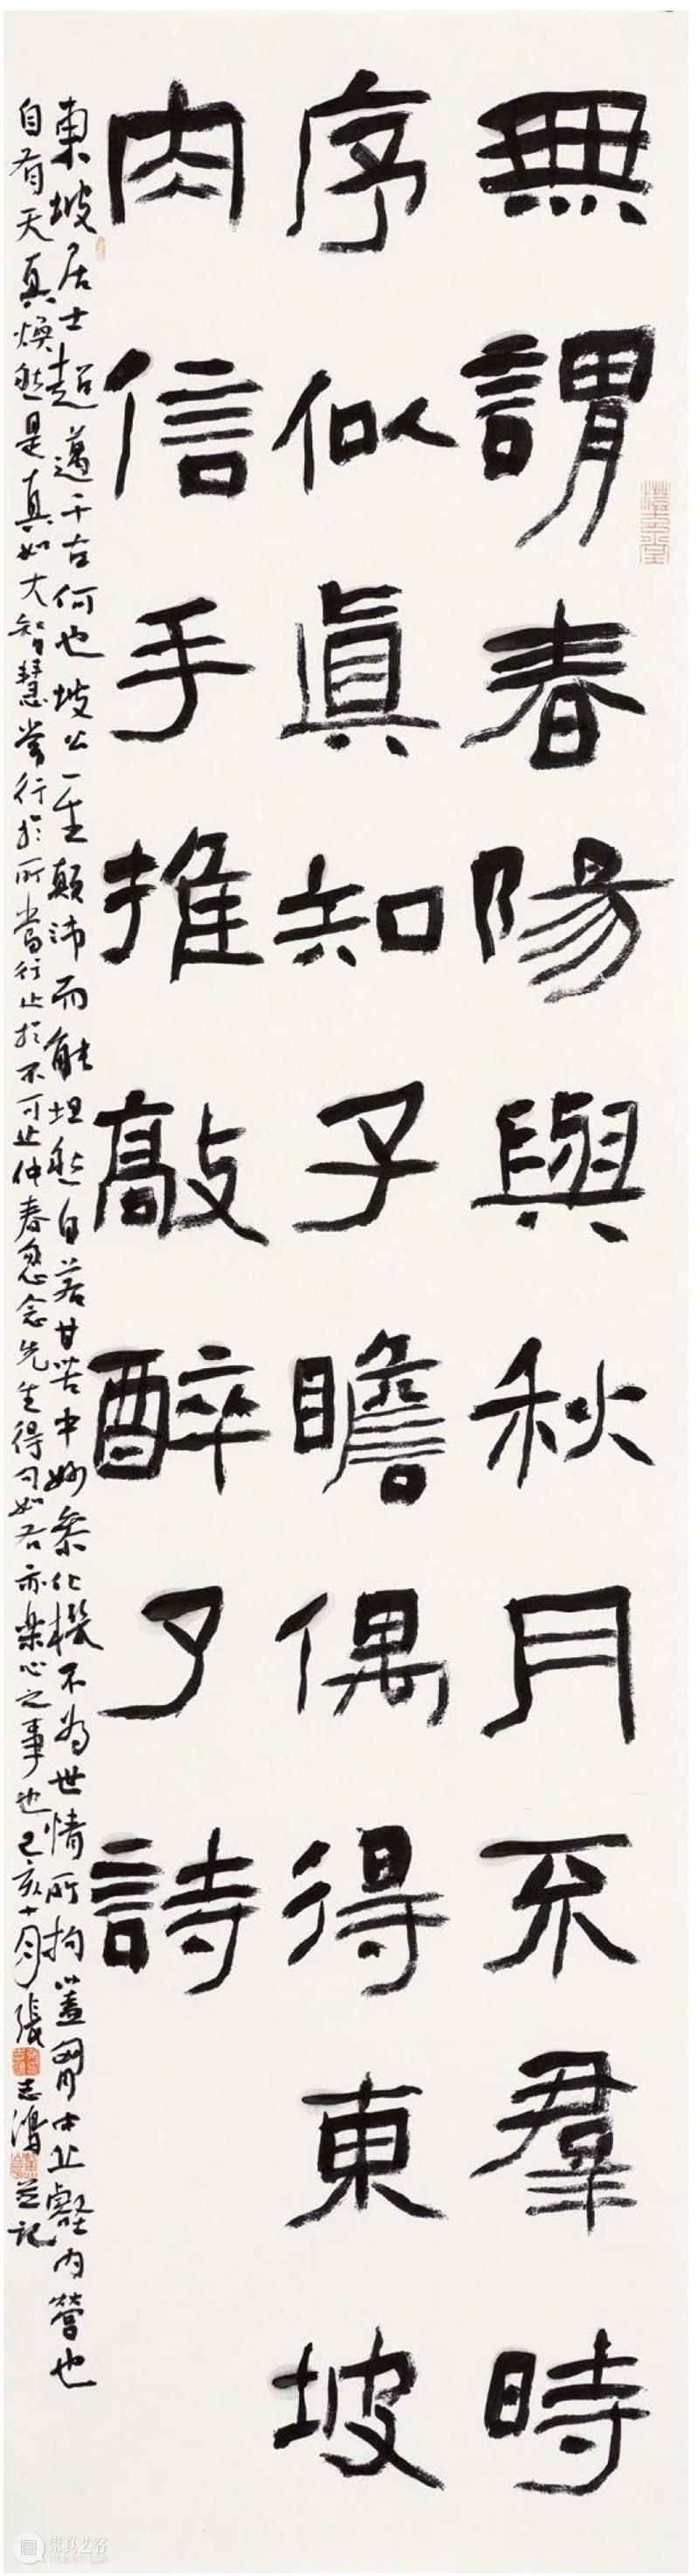 無謂春陽與秋月不羣時
序似眞知子瞻偶得東坡
肉信手推敲醉了詩
東坡居士超邁千古何也坡公一生顛沛而能坦然自若甘苦中妙參化機不為世情所拘蓋胸中丘壑內營也
自有天真煥然是真如大智慧常行於所當行止於不可止仲春忽念先生得句如右亦樂心之事也己亥十月張志鴻並記
崇真艺客
TRUEART.COM